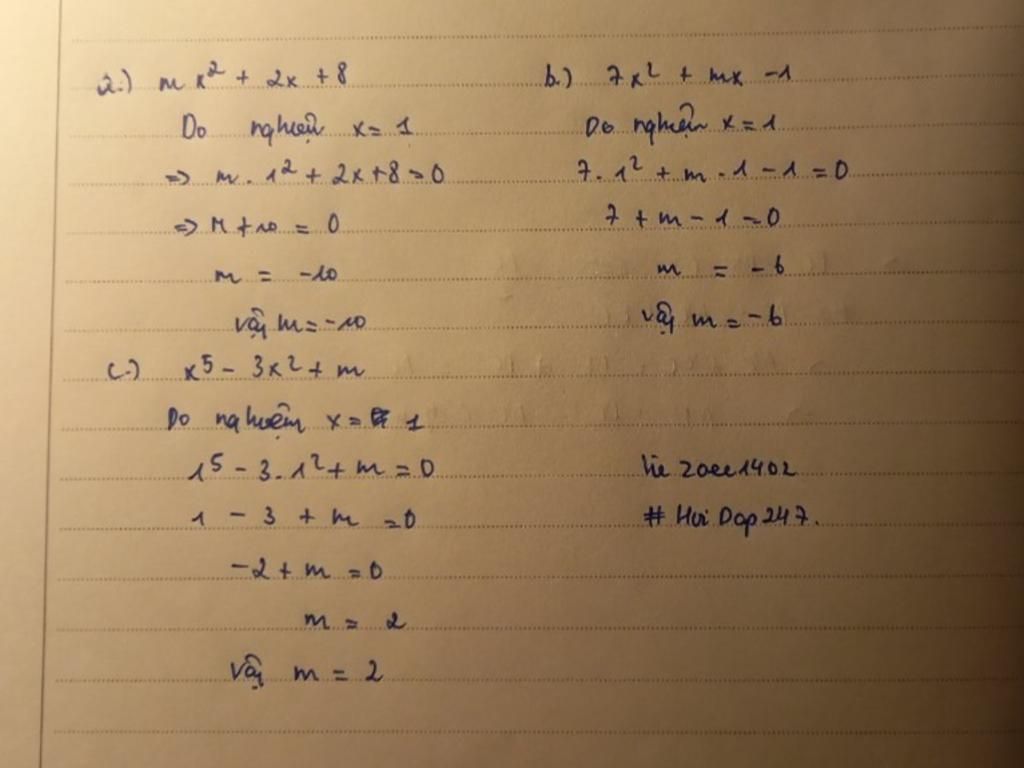 a.) mx² + 2x + 8
Do nghiệm x = 1
=> m . 1² + 2x + 8 = 0
=> m + 10 = 0
m = -10
Vậy m = -10
b.) 7x² + mx - 1
Do nghiệm x = 1
7 . 1² + m . 1 - 1 = 0
7 + m - 1 = 0
m = -6
Vậy m = -6
c.) x⁵ - 3x² + m
Do nghiệm x = 1
1⁵ - 3 . 1² + m = 0
1 - 3 + m = 0
-2 + m = 0
m = 2
Vậy m = 2
# Hoi Dap 247.